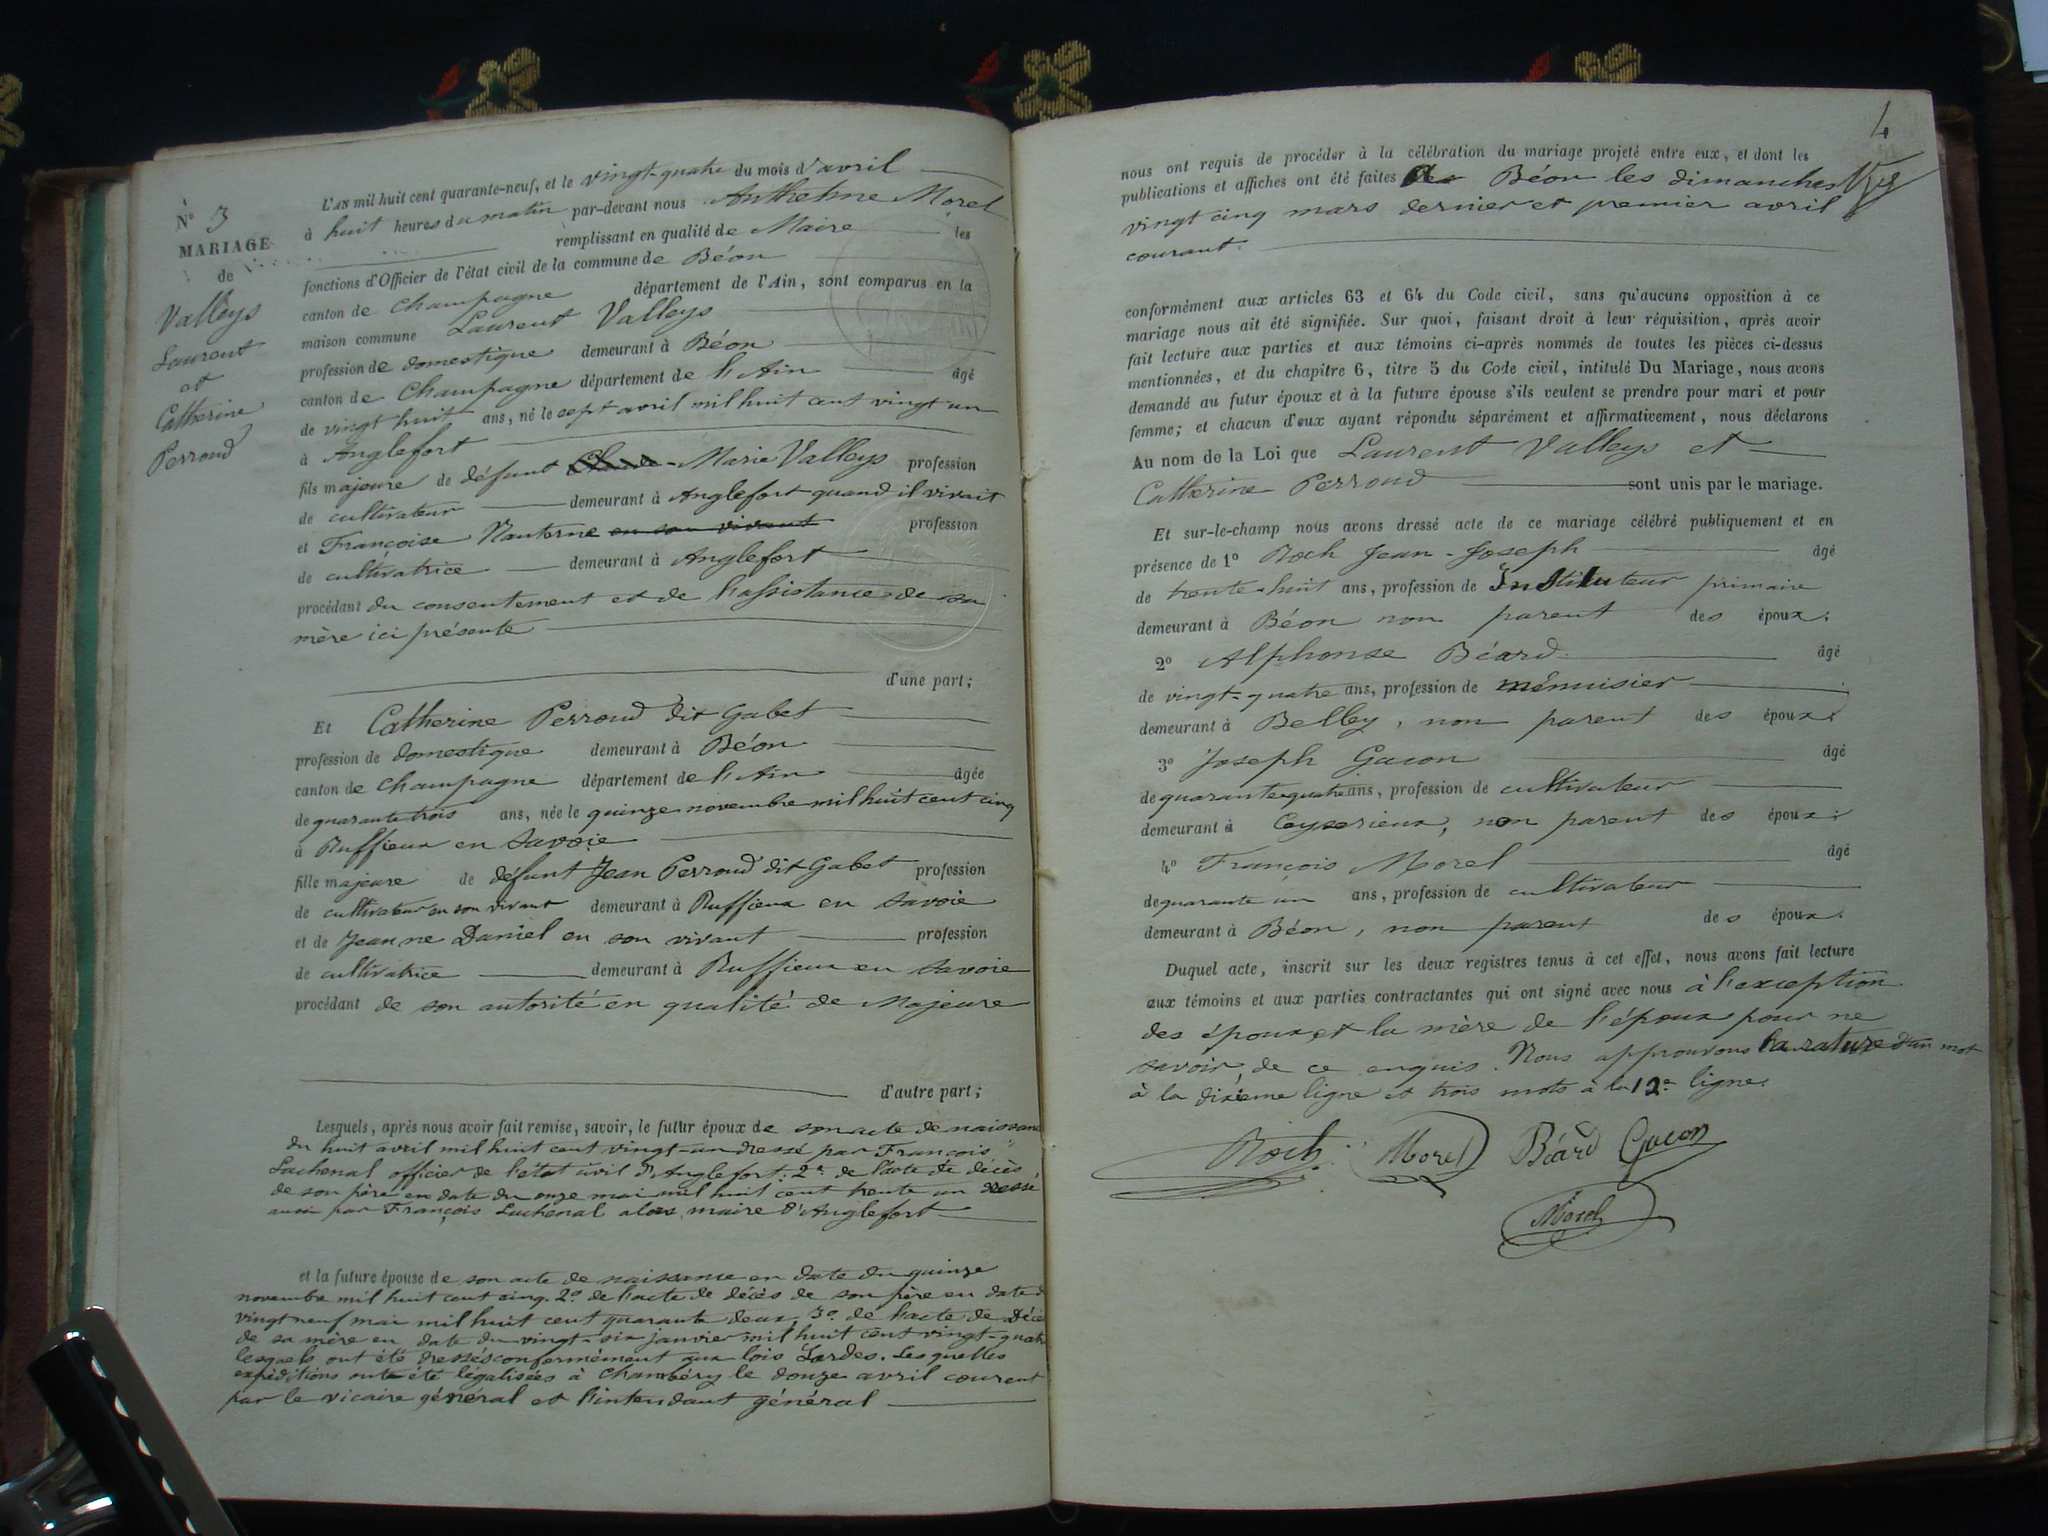 N° 3
MARIAGE
de
Valleys
Laurent
et
Catherine
Perroud
L'AN mil huit cent quarante-neuf, et le vingt-quatre du mois d'avril
à huit heures du matin par-devant nous Anthelme Morel
remplissant en qualité de Maire les
fonctions d'Officier de l'état civil de la commune de Béon
canton de Champagne département de l'Ain, sont comparus en la
maison commune Laurent Valleys
profession de domestique demeurant à Béon
canton de Champagne département de l'Ain âgé
de vingt huit ans, né le sept avril mil huit cent vingt un
à Anglefort
fils majeure de défunt Marie Valleys profession
de cultivateur demeurant à Anglefort quand il vivait
et Françoise Nanterne en son vivant profession
de cultivatrice demeurant à Anglefort
procédant du consentement et de l'assistance de sa
mère ici présente
d'une part;
Et Catherine Perroud dit Gabet
profession de domestique demeurant à Béon
canton de Champagne département de l'Ain âgée
de quarante trois ans, née le quinze novembre mil huit cent cinq
à Ruffieux en Savoie
fille majeure de défunt Jean Perroud dit Gabet profession
de cultivateur en son vivant demeurant à Ruffieux en Savoie
et de Jeanne Daniel en son vivant profession
de cultivatrice demeurant à Ruffieux en Savoie
procédant de son autorité en qualité de Majeure
d'autre part;
Lesquels, après nous avoir fait remise, savoir, le futur époux de son acte de naissance
du huit avril mil huit cent vingt-un dressé par François
Lachenal officier de l'état civil d'Anglefort. 2° de l'acte de décès
de son père en date du onze mai mil huit cent trente un dressé
aussi par François Lachenal alors maire d'Anglefort
et la future épouse de son acte de naissance en date du quinze
novembre mil huit cent cinq. 2° de l'acte de décès de son père en date d
vingt neuf mai mil huit cent quarante deux, 3° de l'acte de Décè
de sa mère en date du vingt-six janvier mil huit cent vingt-quatr
lesquels ont été dressés conformément aux lois Sardes. Lesquelles
expéditions ont été légalisées à Chambéry le douze avril courent
par le vicaire général et l'intendant général
4
nous ont requis de procéder à la célébration du mariage projeté entre eux, et dont les
publications et affiches ont été faites Béon les dimanches
vingt cinq mars dernier et premier avril
courant.
conformément aux articles 63 et 64 du Code civil, sans qu'aucune opposition à ce
mariage nous ait été signifiée. Sur quoi, faisant droit à leur réquisition, après avoir
fait lecture aux parties et aux témoins ci-après nommés de toutes les pièces ci-dessus
mentionnées, et du chapitre 6, titre 5 du Code civil, intitulé Du Mariage, nous avons
demandé au futur époux et à la future épouse s'ils veulent se prendre pour mari et pour
femme; et chacun d'eux ayant répondu séparément et affirmativement, nous déclarons
Au nom de la Loi que Laurent Valleys et
Catherine Perroud sont unis par le mariage.
Et sur-le-champ nous avons dressé acte de ce mariage célébré publiquement et en
présence de 1° Roch Jean-Joseph âgé
de trente-huit ans, profession de Instituteur primaire
demeurant à Béon non parent des époux.
2° Alphonse Béard âgé
de vingt-quatre ans, profession de ménuisier
demeurant à Belley, non parent des époux.
3° Joseph Gacon âgé
de quarante-quatre ans, profession de cultivateur
demeurant à Ceyserieux, non parent des époux.
4° François Morel âgé
de quarante un ans, profession de cultivateur
demeurant à Béon, non parent des époux.
Duquel acte, inscrit sur les deux registres tenus à cet effet, nous avons fait lecture
aux témoins et aux parties contractantes qui ont signé avec nous à l'exception
des époux et la mère de l'époux pour ne
savoir, de ce enquis. Nous approuvons la rature d'un mot
à la dixième ligne et trois mots à la 12e ligne.
Roch Morel Béard Gacon
Morel